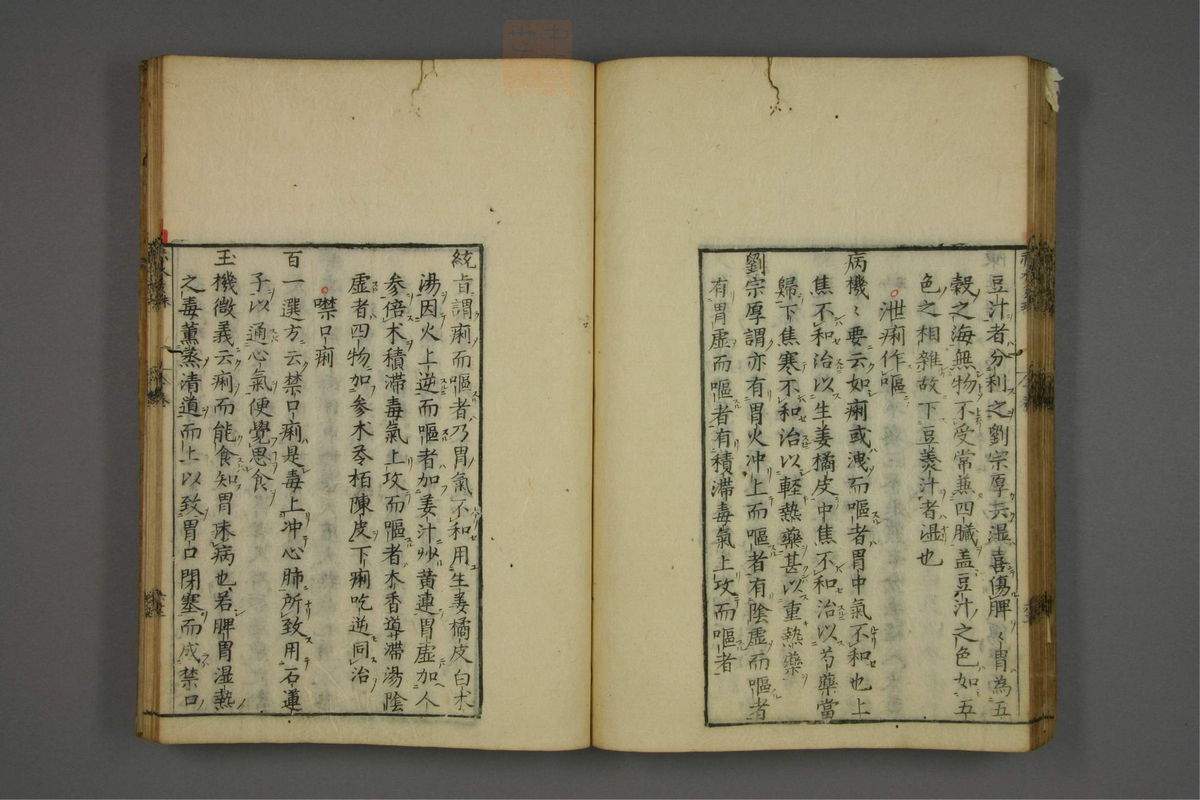 豆汁者分利之劉宗厚云湿喜傷脾〻胃為五
穀之海無物不受常兼四臓盖豆汁之色如五
色之相雜故下豆羙汁者湿也
泄痢作嘔
病機〻要云如痢或洩而嘔者胃中氣不和也上
焦不和治以生姜橘皮中焦不和治以芍藥當
歸下焦寒不和治以輕熱藥甚以重熱藥
劉宗厚謂亦有胃火冲上而嘔者有陰虚而嘔者
有胃虚而嘔者有積滞毒氣上攻而嘔者
統旨謂痢而嘔者乃胃氣不和用生姜橘皮白朮
湯因火上逆而嘔者加姜汁炒黄連胃虚加人
参倍朮積滞毒氣上攻而嘔者木香導滞湯陰
虚者四物加参朮苓栢陳皮下痢吃逆同治
噤口痢
百一選方云禁口痢是毒上冲心肺所致用石蓮
子以通心氣便覺思食
玉機微義云痢而能食知胃未病也若脾胃湿熱
之毒薫蒸清道而上以致胃口閉塞而成禁口